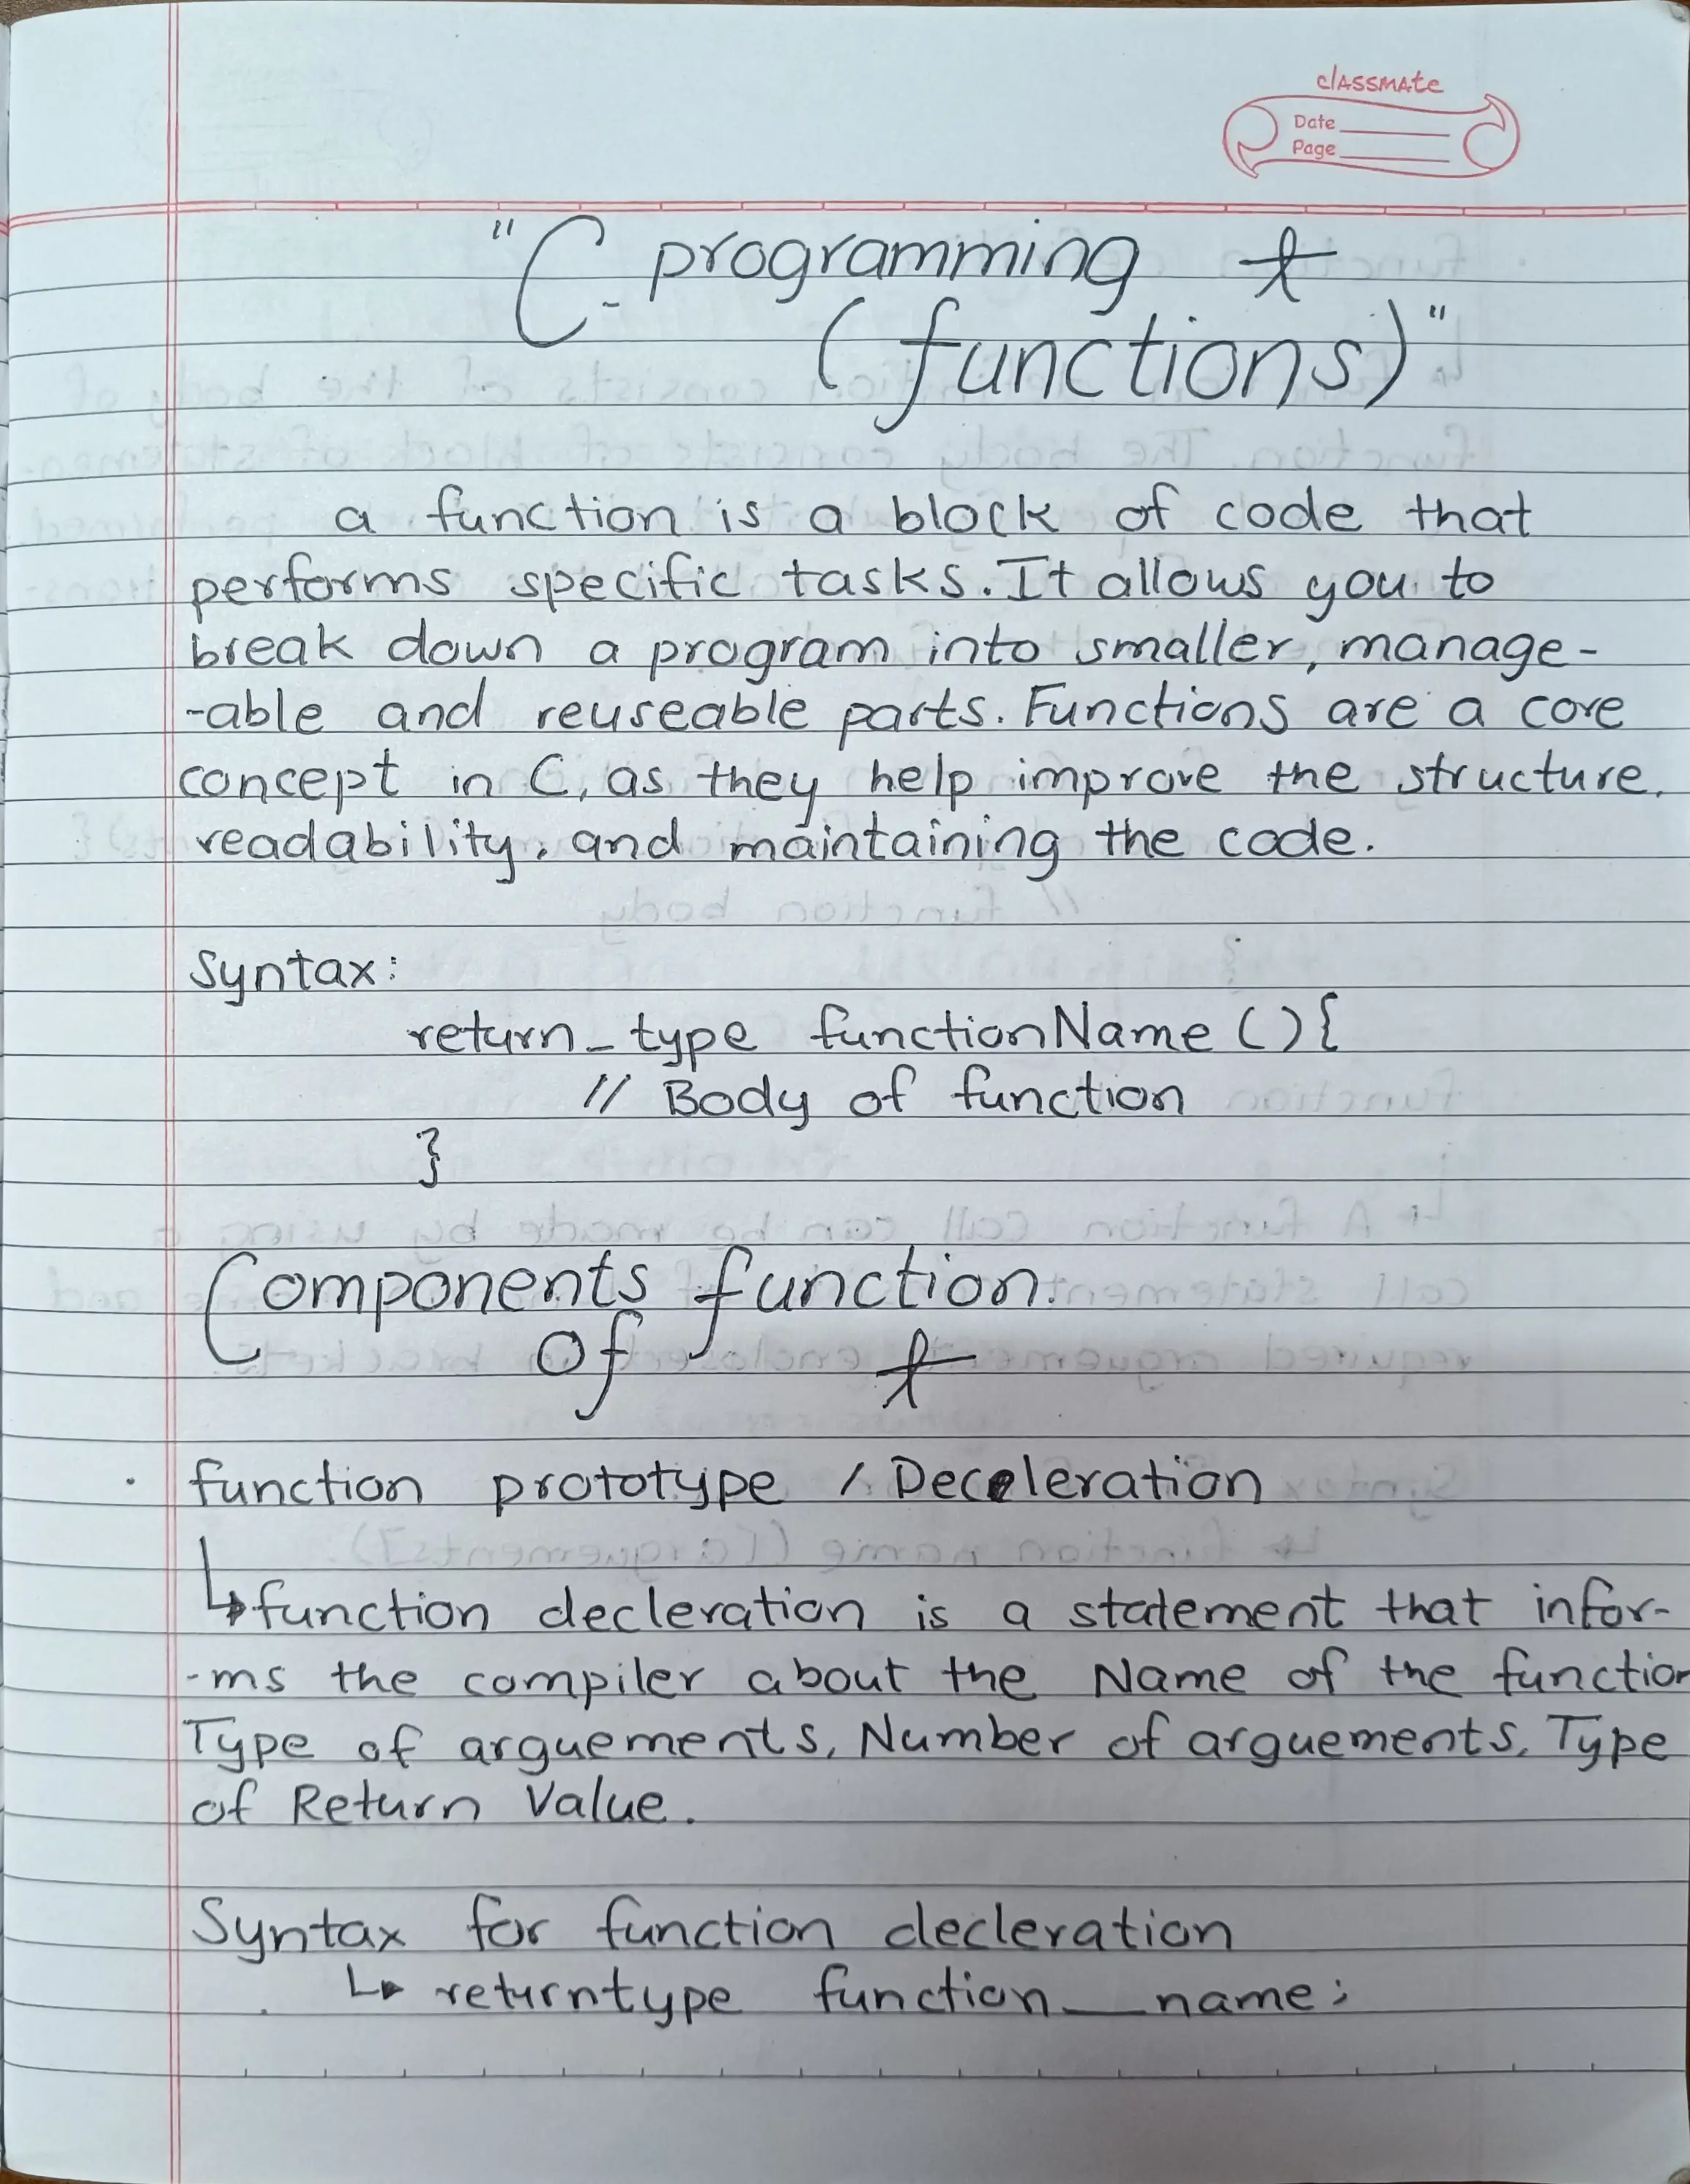 classmate
Date
Page
"C programming
(functions)"
a function is a block of code that
performs specific tasks. It allows you to
break down a program into smaller, manage-
-able and reuseable parts. Functions are a core
concept in C, as they help improve the structure,
readability, and maintaining the code.
Syntax:
return_type functionName () {
// Body of function
}
Components function.
of
• function prototype / Deceleration
↳ function decleration is a statement that infor-
-ms the compiler about the Name of the function
Type of arguements, Number of arguements, Type
of Return Value.
Syntax for function decleration
↳ returntype function_name;